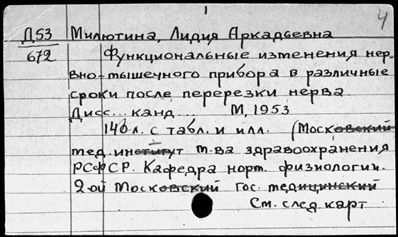 4
Д53 Милютина, Лидия Аркадьевна
672 Функциональные изменения нер-
вно-мышечного прибора в различные
сроки после перерезки нерва.
Дисс... канд... М, 1953
140 л. с табл. и илл. (Московский
мед. институт м-ва здравоохранения
РСФСР. Кафедра норм. физиологии.
2-ой Московский Гос. медицинский
См. след. карт